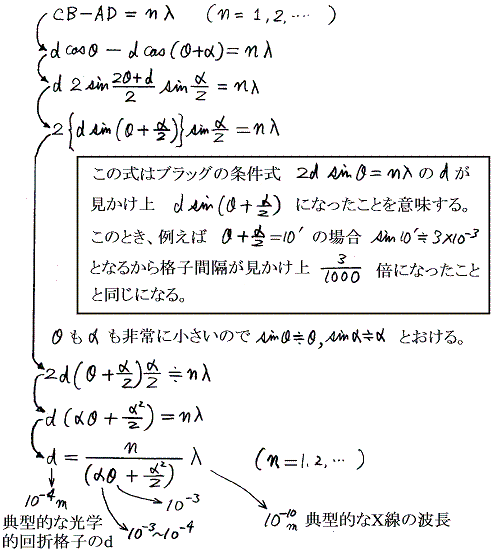 CB-AD=nλ (n=1,2,‥‥)
d cosθ − d cos(θ+α)=nλ
d 2 sin (2θ+d)/2 sin α/2 = nλ
2{d sin(θ+α/2)}sin α/2 = nλ
この式はブラッグの条件式 2d sinθ=nλ の d が
見かけ上 d sin(θ+α/2) になったことを意味する。
このとき、例えば θ+α/2=10′ の場合 sin10′≒3×10⁻³
となるから格子間隔が見かけ上 3/1000 倍になったこと
と同じになる。
θ も α も非常に小さいので sinθ≒θ, sinα≒α とおける。
2d(θ+α/2)α/2 ≒ nλ
d(αθ+α²/2)=nλ
d = n/(αθ+α²/2) λ (n=1,2,‥‥)
10⁻⁴m 10⁻³ 10⁻³~10⁻⁴ 10⁻¹⁰m 典型的なX線の波長
典型的な光学
的回折格子のd